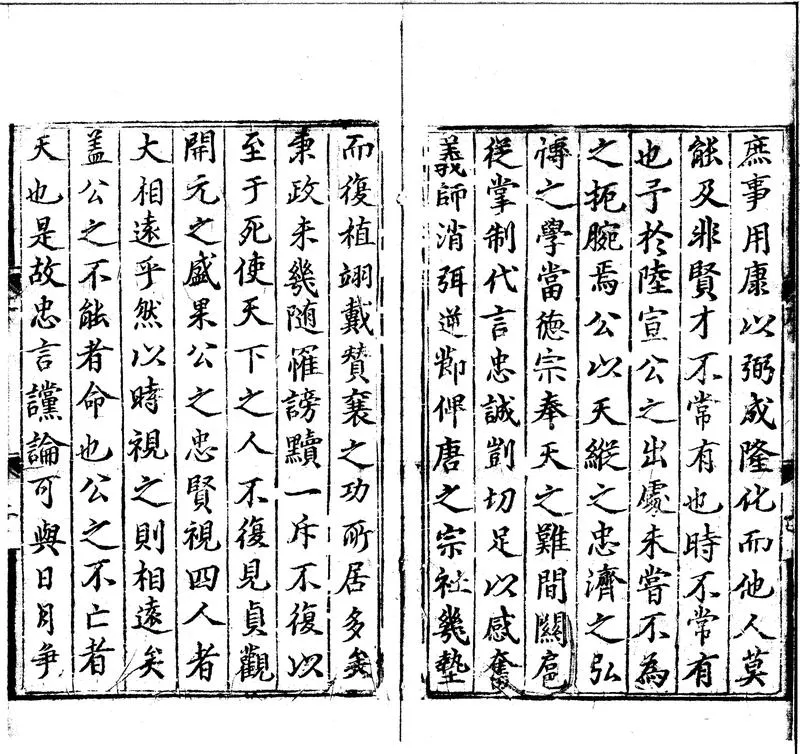 庶事用康以弼成隆化而他人莫
能及非賢才不常有也時不常有
也予於陸宣公之出處未嘗不為
之扼腕焉公以天縱之忠濟之弘
慱之學當德宗奉天之難間關扈
從掌制代言忠誠剴切足以感奮
義師消弭逆節俾唐之宗社幾墊
而復植翊戴賛襄之功所居多矣
秉政未幾随罹謗黷一斥不復以
至于死使天下之人不復見貞觀
開元之盛果公之忠賢視四人者
大相遠乎然以時視之則相遠矣
盖公之不能者命也公之不亡者
天也是故忠言讜論可與日月争